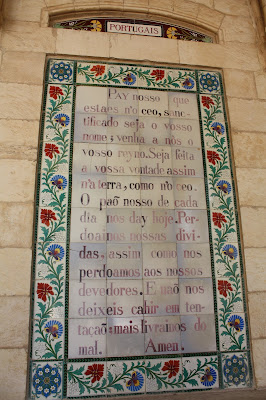 PORTUGAIS
PAY nosso que
estaes n'o ceo, sanc-
tificado seja o vosso
nome; venha a nós o
vosso reyno. Seja feita
a vossa vontade assim
n'a terra, como n'o ceo.
O pão nosso de cada
dia nos day hoje. Per-
doainos nossas divi-
das, assim como nos
perdoamos aos nossos
devedores. E não nos
deixeis cahir em ten-
tação: mais livrainos do
mal. Amen.